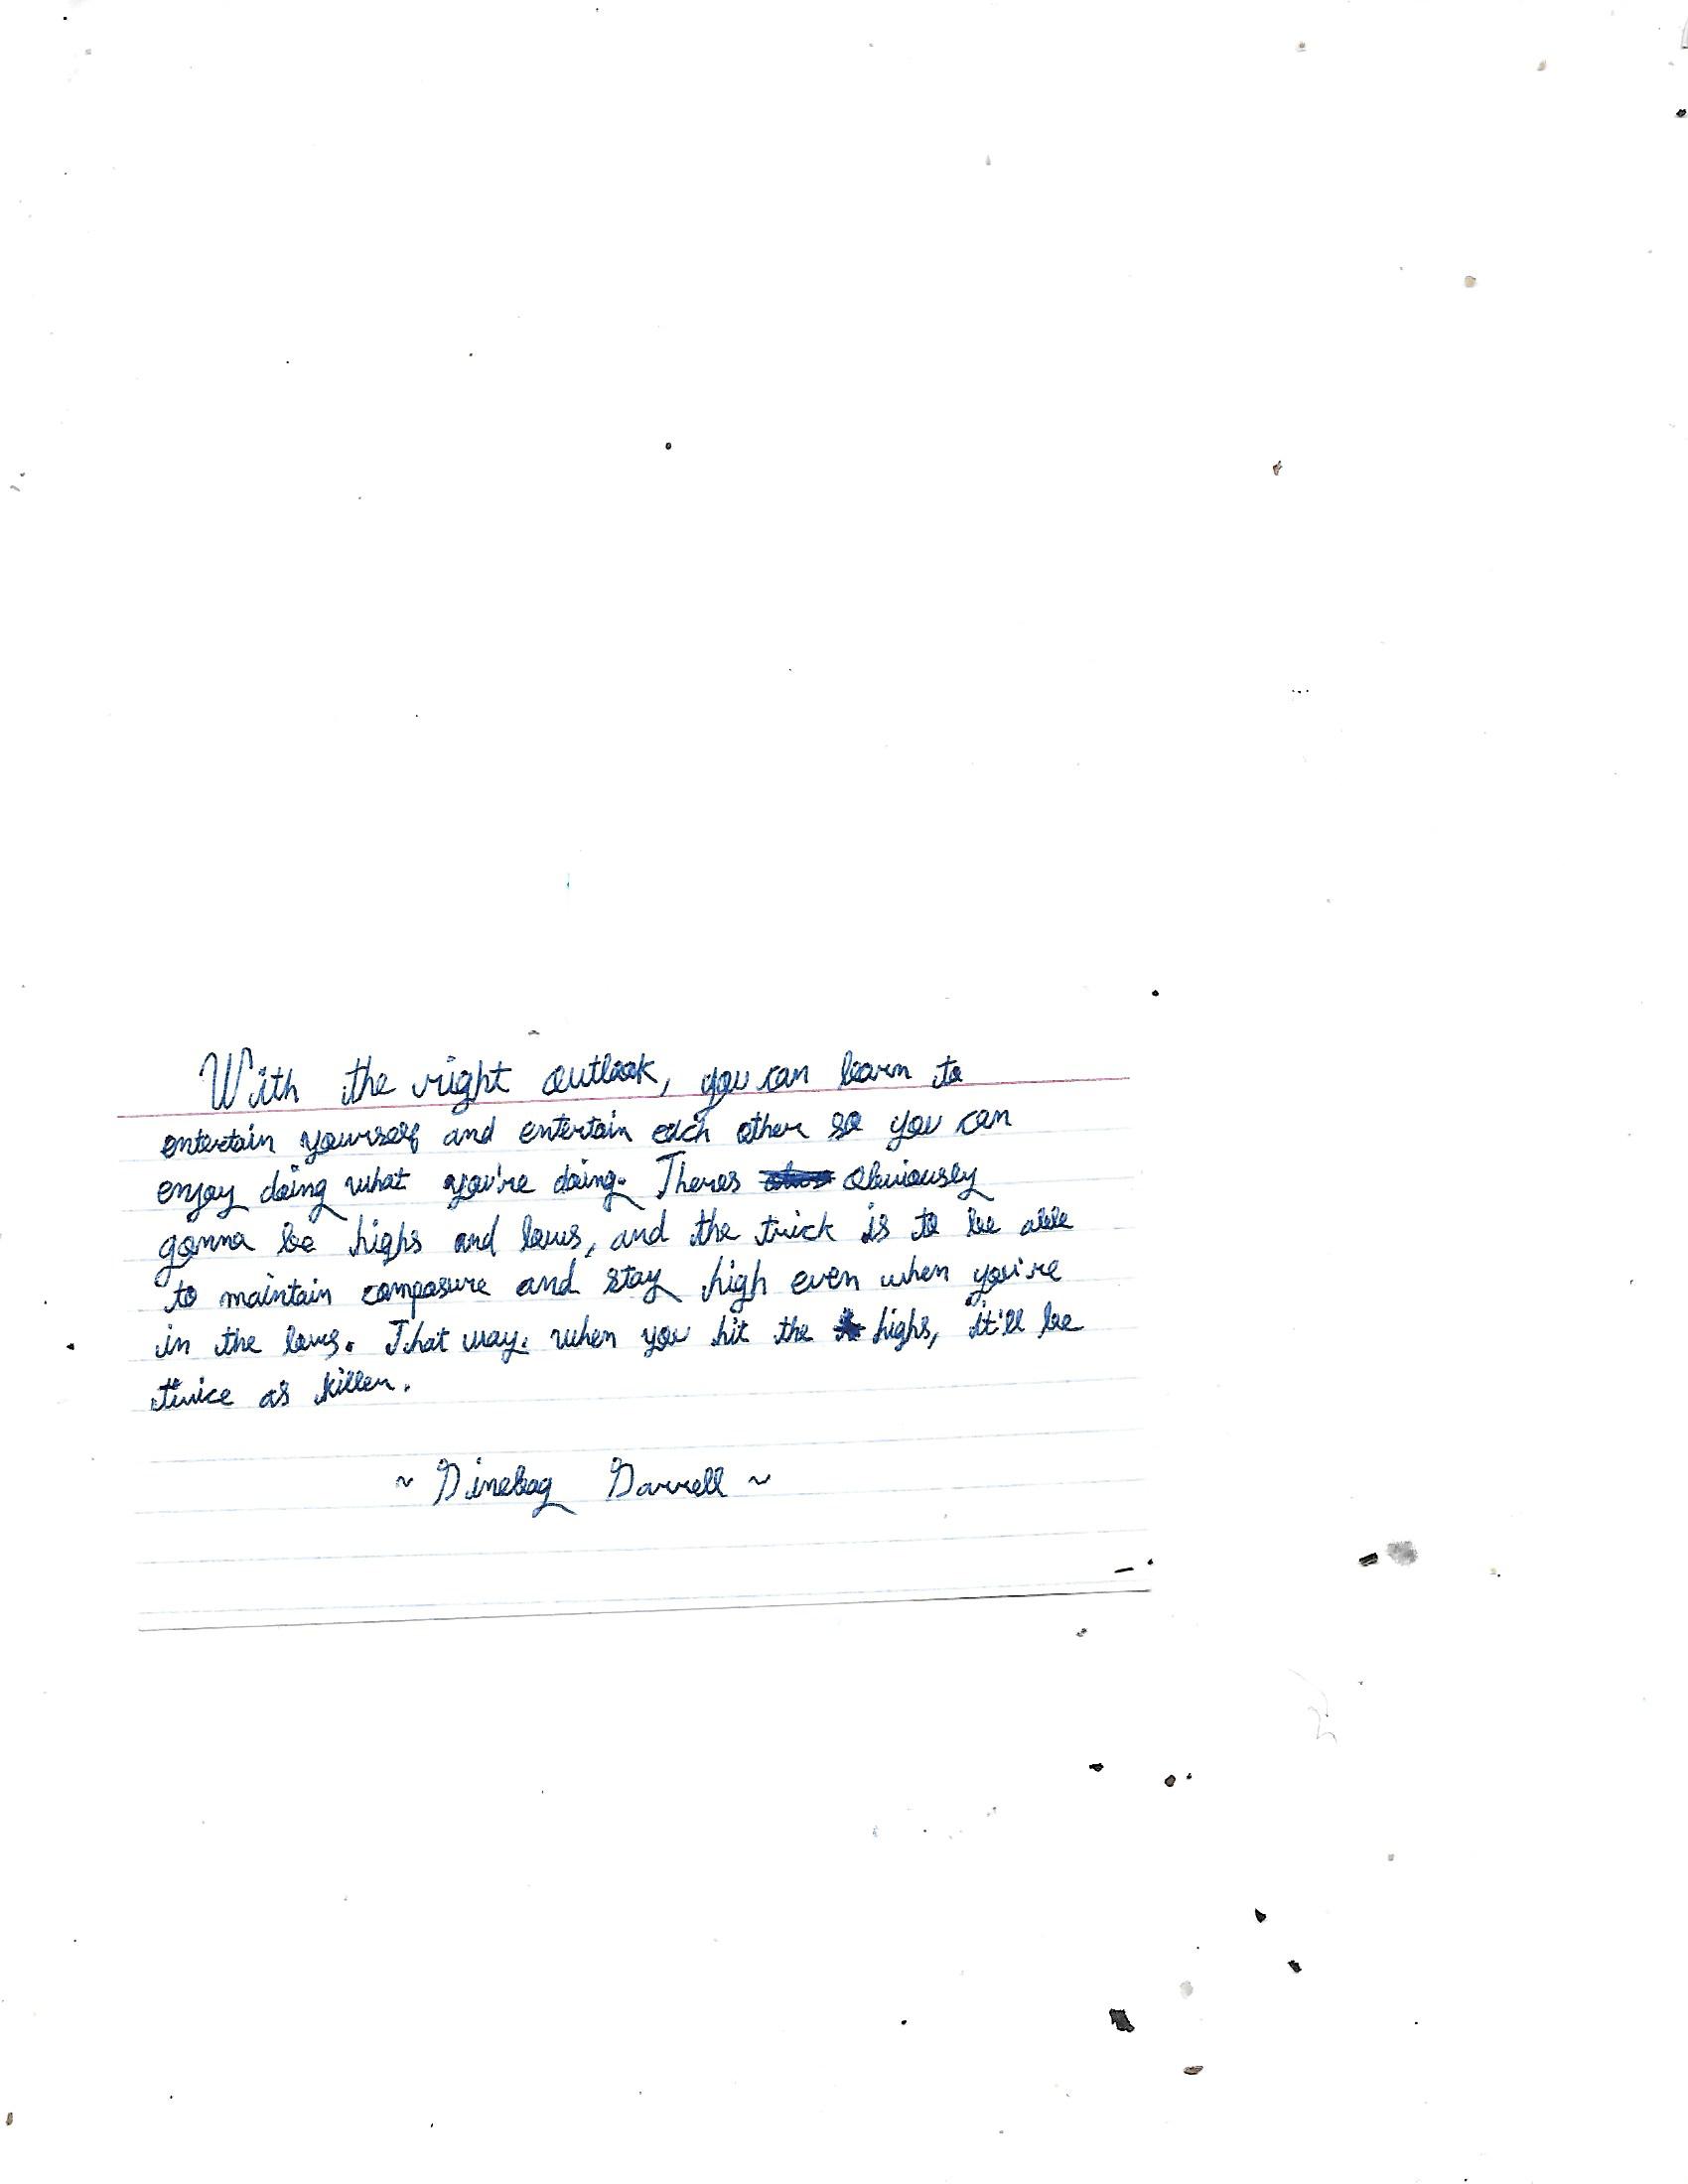 With the right outlook, you can learn to
entertain yourself and entertain each other so you can
enjoy doing what you're doing. Theres obviously
gonna be highs and lows, and the trick is to be able
to maintain composure and stay high even when you're
in the lows. That way. when you hit the highs, it'll be
twice as killer.
~ Dimebag Darrell ~